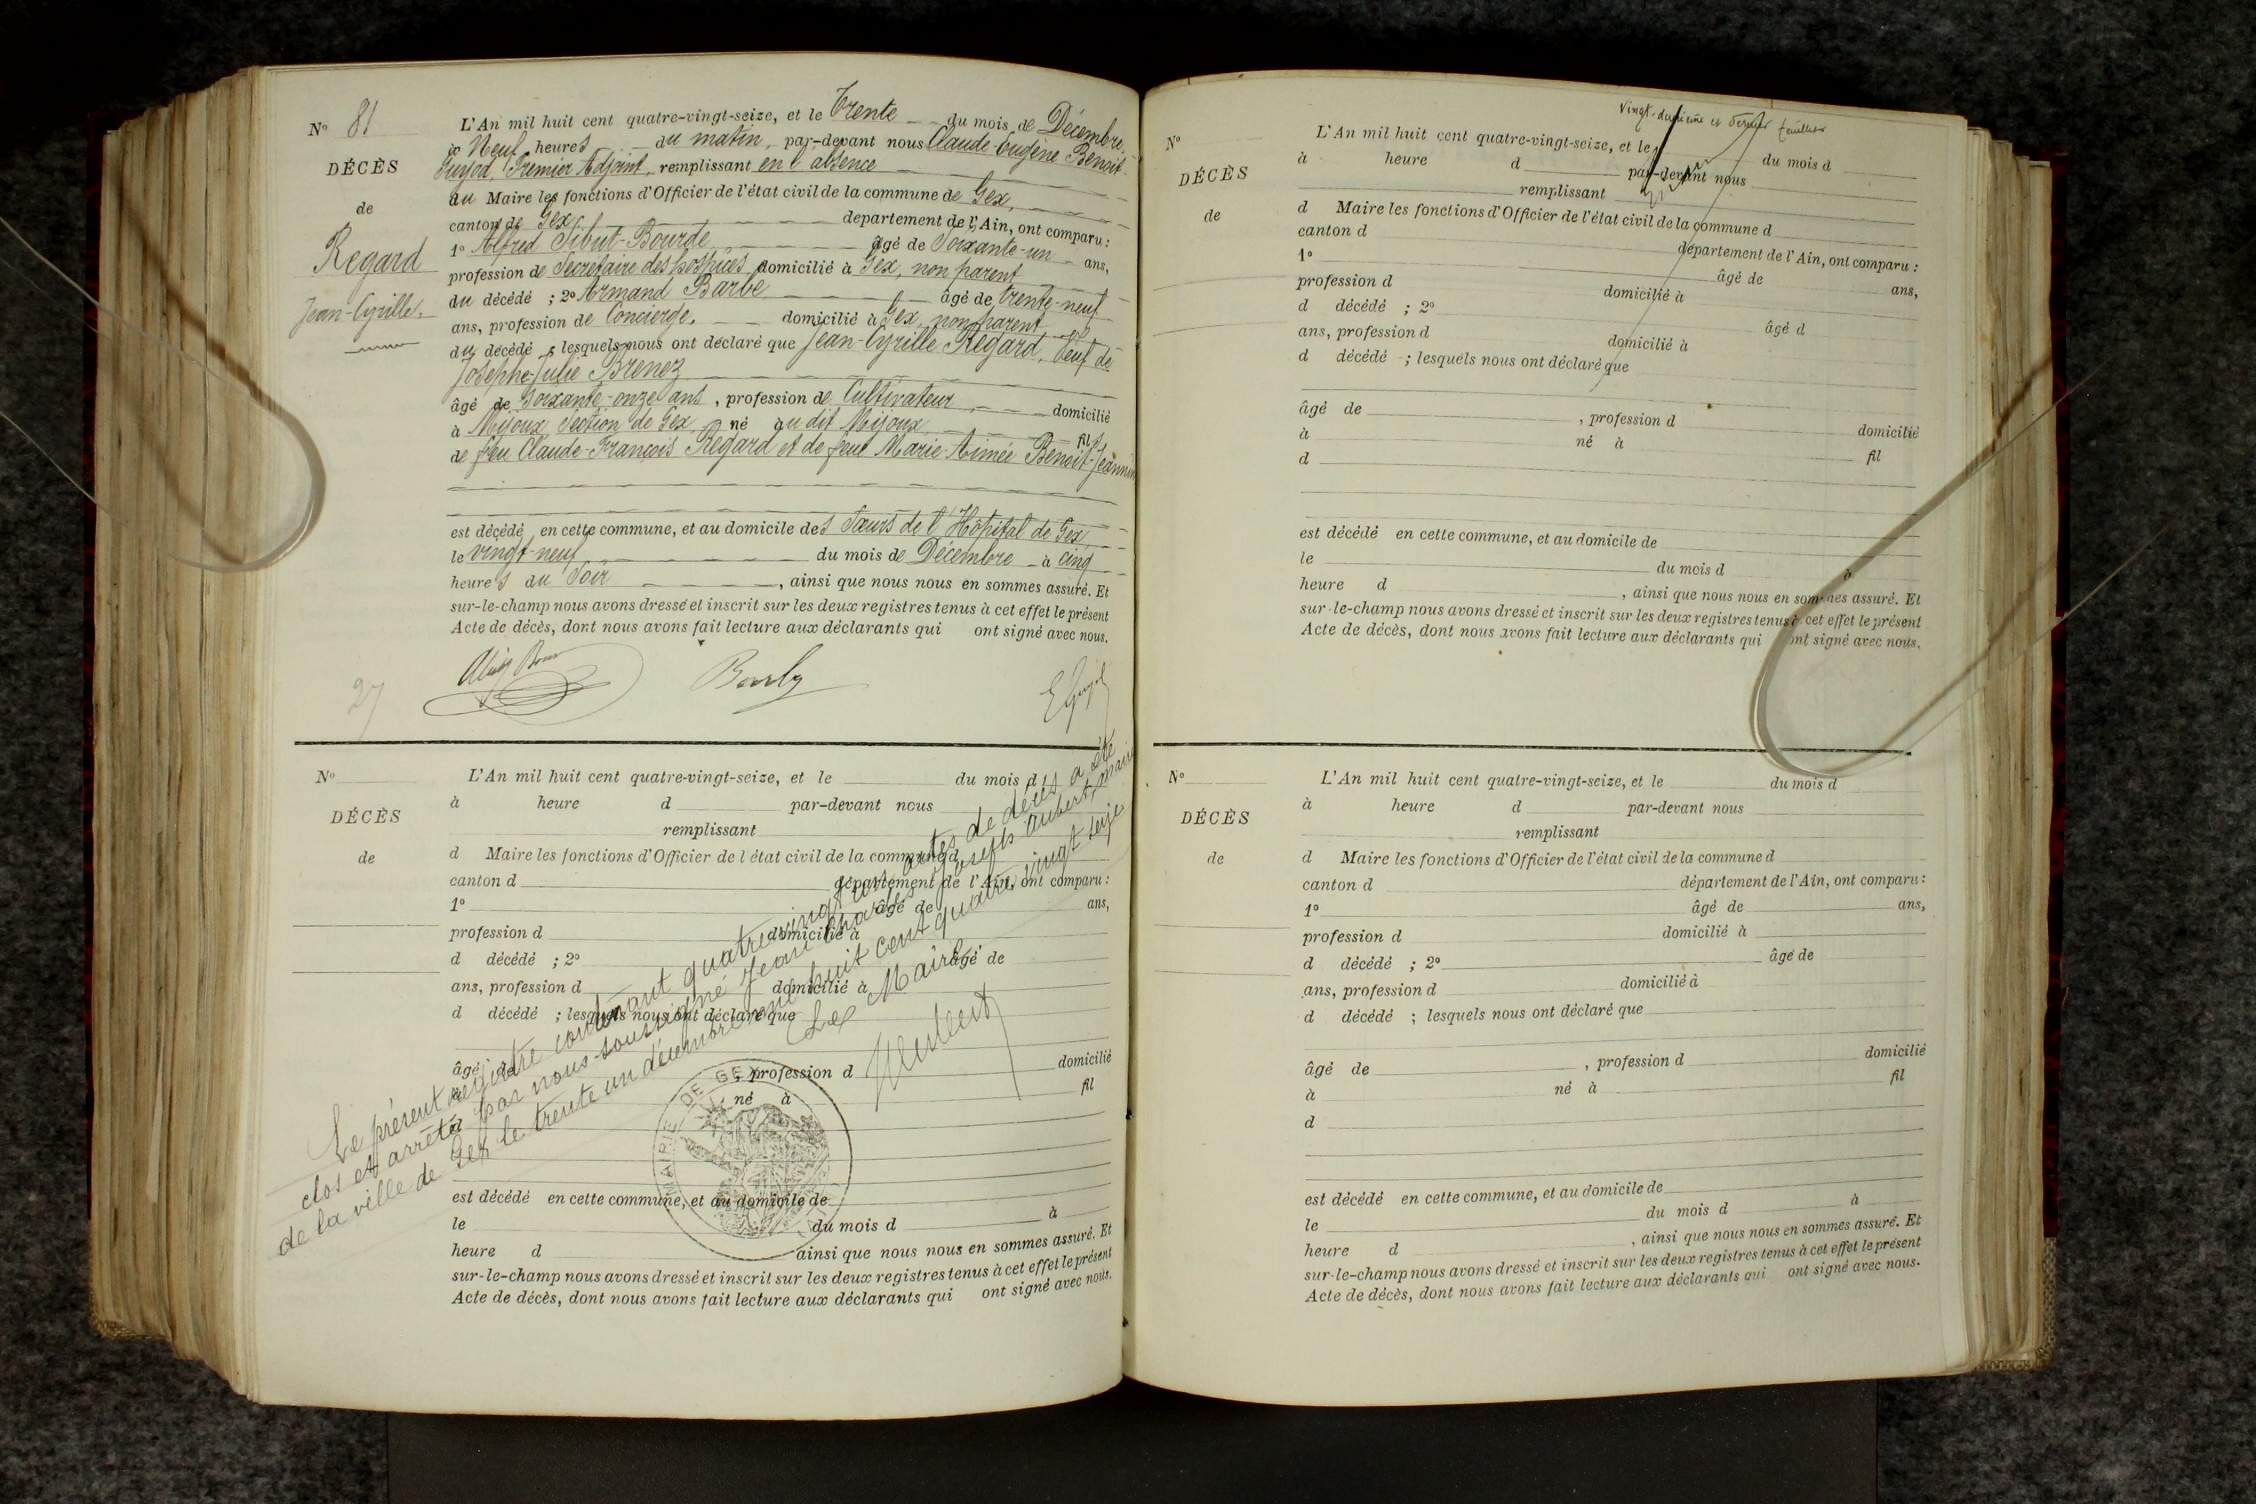 N° 81
DÉCÈS
de
Regard
Jean-Cyrille.
L'An mil huit cent quatre-vingt-seize, et le Trente du mois de Décembre,
à Neuf heures du matin, par-devant nous Claude-Eugène Benoit
Guyod, Premier Adjoint, remplissant en l'absence
du Maire les fonctions d'Officier de l'état civil de la commune de Gex,
canton de Gex, département de l'Ain, ont comparu :
1° Alfred Sibut-Bourde âgé de Soixante-un ans,
profession de Secrétaire des hospices domicilié à Gex, non parent
du décédé ; 2° Armand Barbe âgé de trente-neuf
ans, profession de Concierge, domicilié à Gex, non parent
du décédé ; lesquels nous ont déclaré que Jean-Cyrille Regard, veuf de
Josephe-Julie Brenez
âgé de Soixante-onze ans, profession de Cultivateur, domicilié
à Mijoux Section de Gex, né au dit Mijoux fils
de feu Claude-François Regard et de feue Marie-Aimée Benoit-Jeannin
est décédé en cette commune, et au domicile des Sœurs de l'Hôpital de Gex,
le vingt-neuf du mois de Décembre à cinq
heures du Soir, ainsi que nous nous en sommes assuré. Et
sur-le-champ nous avons dressé et inscrit sur les deux registres tenus à cet effet le présent
Acte de décès, dont nous avons fait lecture aux déclarants qui ont signé avec nous.
27
N°
DÉCÈS
de
L'An mil huit cent quatre-vingt-seize, et le du mois d
à heure d par-devant nous
remplissant
d Maire les fonctions d'Officier de l'état civil de la commune d
canton d département de l'Ain, ont comparu :
1° âgé de ans,
profession d domicilié à
d décédé ; 2° âgé de
ans, profession d domicilié à
d décédé ; lesquels nous ont déclaré que
âgé de , profession d domicilié
à né à fil
d
est décédé en cette commune, et au domicile de
le du mois d à
heure d , ainsi que nous nous en sommes assuré. Et
sur-le-champ nous avons dressé et inscrit sur les deux registres tenus à cet effet le présent
Acte de décès, dont nous avons fait lecture aux déclarants qui ont signé avec nous.
Le présent registre contenant quatre vingt un actes de décès a été
clos et arrêté par nous soussigné Jean Charles Joseph Aubert, maire
de la ville de Gex le trente un décembre mil huit cent quatre vingt seize
Le Maire
MAIRIE DE GEX
Vingt-deuxième et dernier feuillet
N°
DÉCÈS
de
L'An mil huit cent quatre-vingt-seize, et le du mois d
à heure d par-devant nous
remplissant
d Maire les fonctions d'Officier de l'état civil de la commune d
canton d département de l'Ain, ont comparu :
1° âgé de ans,
profession d domicilié à
d décédé ; 2° âgé d
ans, profession d domicilié à
d décédé ; lesquels nous ont déclaré que
âgé de , profession d domicilié
à né à fil
d
est décédé en cette commune, et au domicile de
le du mois d à
heure d , ainsi que nous nous en sommes assuré. Et
sur-le-champ nous avons dressé et inscrit sur les deux registres tenus à cet effet le présent
Acte de décès, dont nous avons fait lecture aux déclarants qui ont signé avec nous.
N°
DÉCÈS
de
L'An mil huit cent quatre-vingt-seize, et le du mois d
à heure d par-devant nous
remplissant
d Maire les fonctions d'Officier de l'état civil de la commune d
canton d département de l'Ain, ont comparu :
1° âgé de ans,
profession d domicilié à
d décédé ; 2° âgé de
ans, profession d domicilié à
d décédé ; lesquels nous ont déclaré que
âgé de , profession d domicilié
à né à fil
d
est décédé en cette commune, et au domicile de
le du mois d à
heure d , ainsi que nous nous en sommes assuré. Et
sur-le-champ nous avons dressé et inscrit sur les deux registres tenus à cet effet le présent
Acte de décès, dont nous avons fait lecture aux déclarants qui ont signé avec nous.